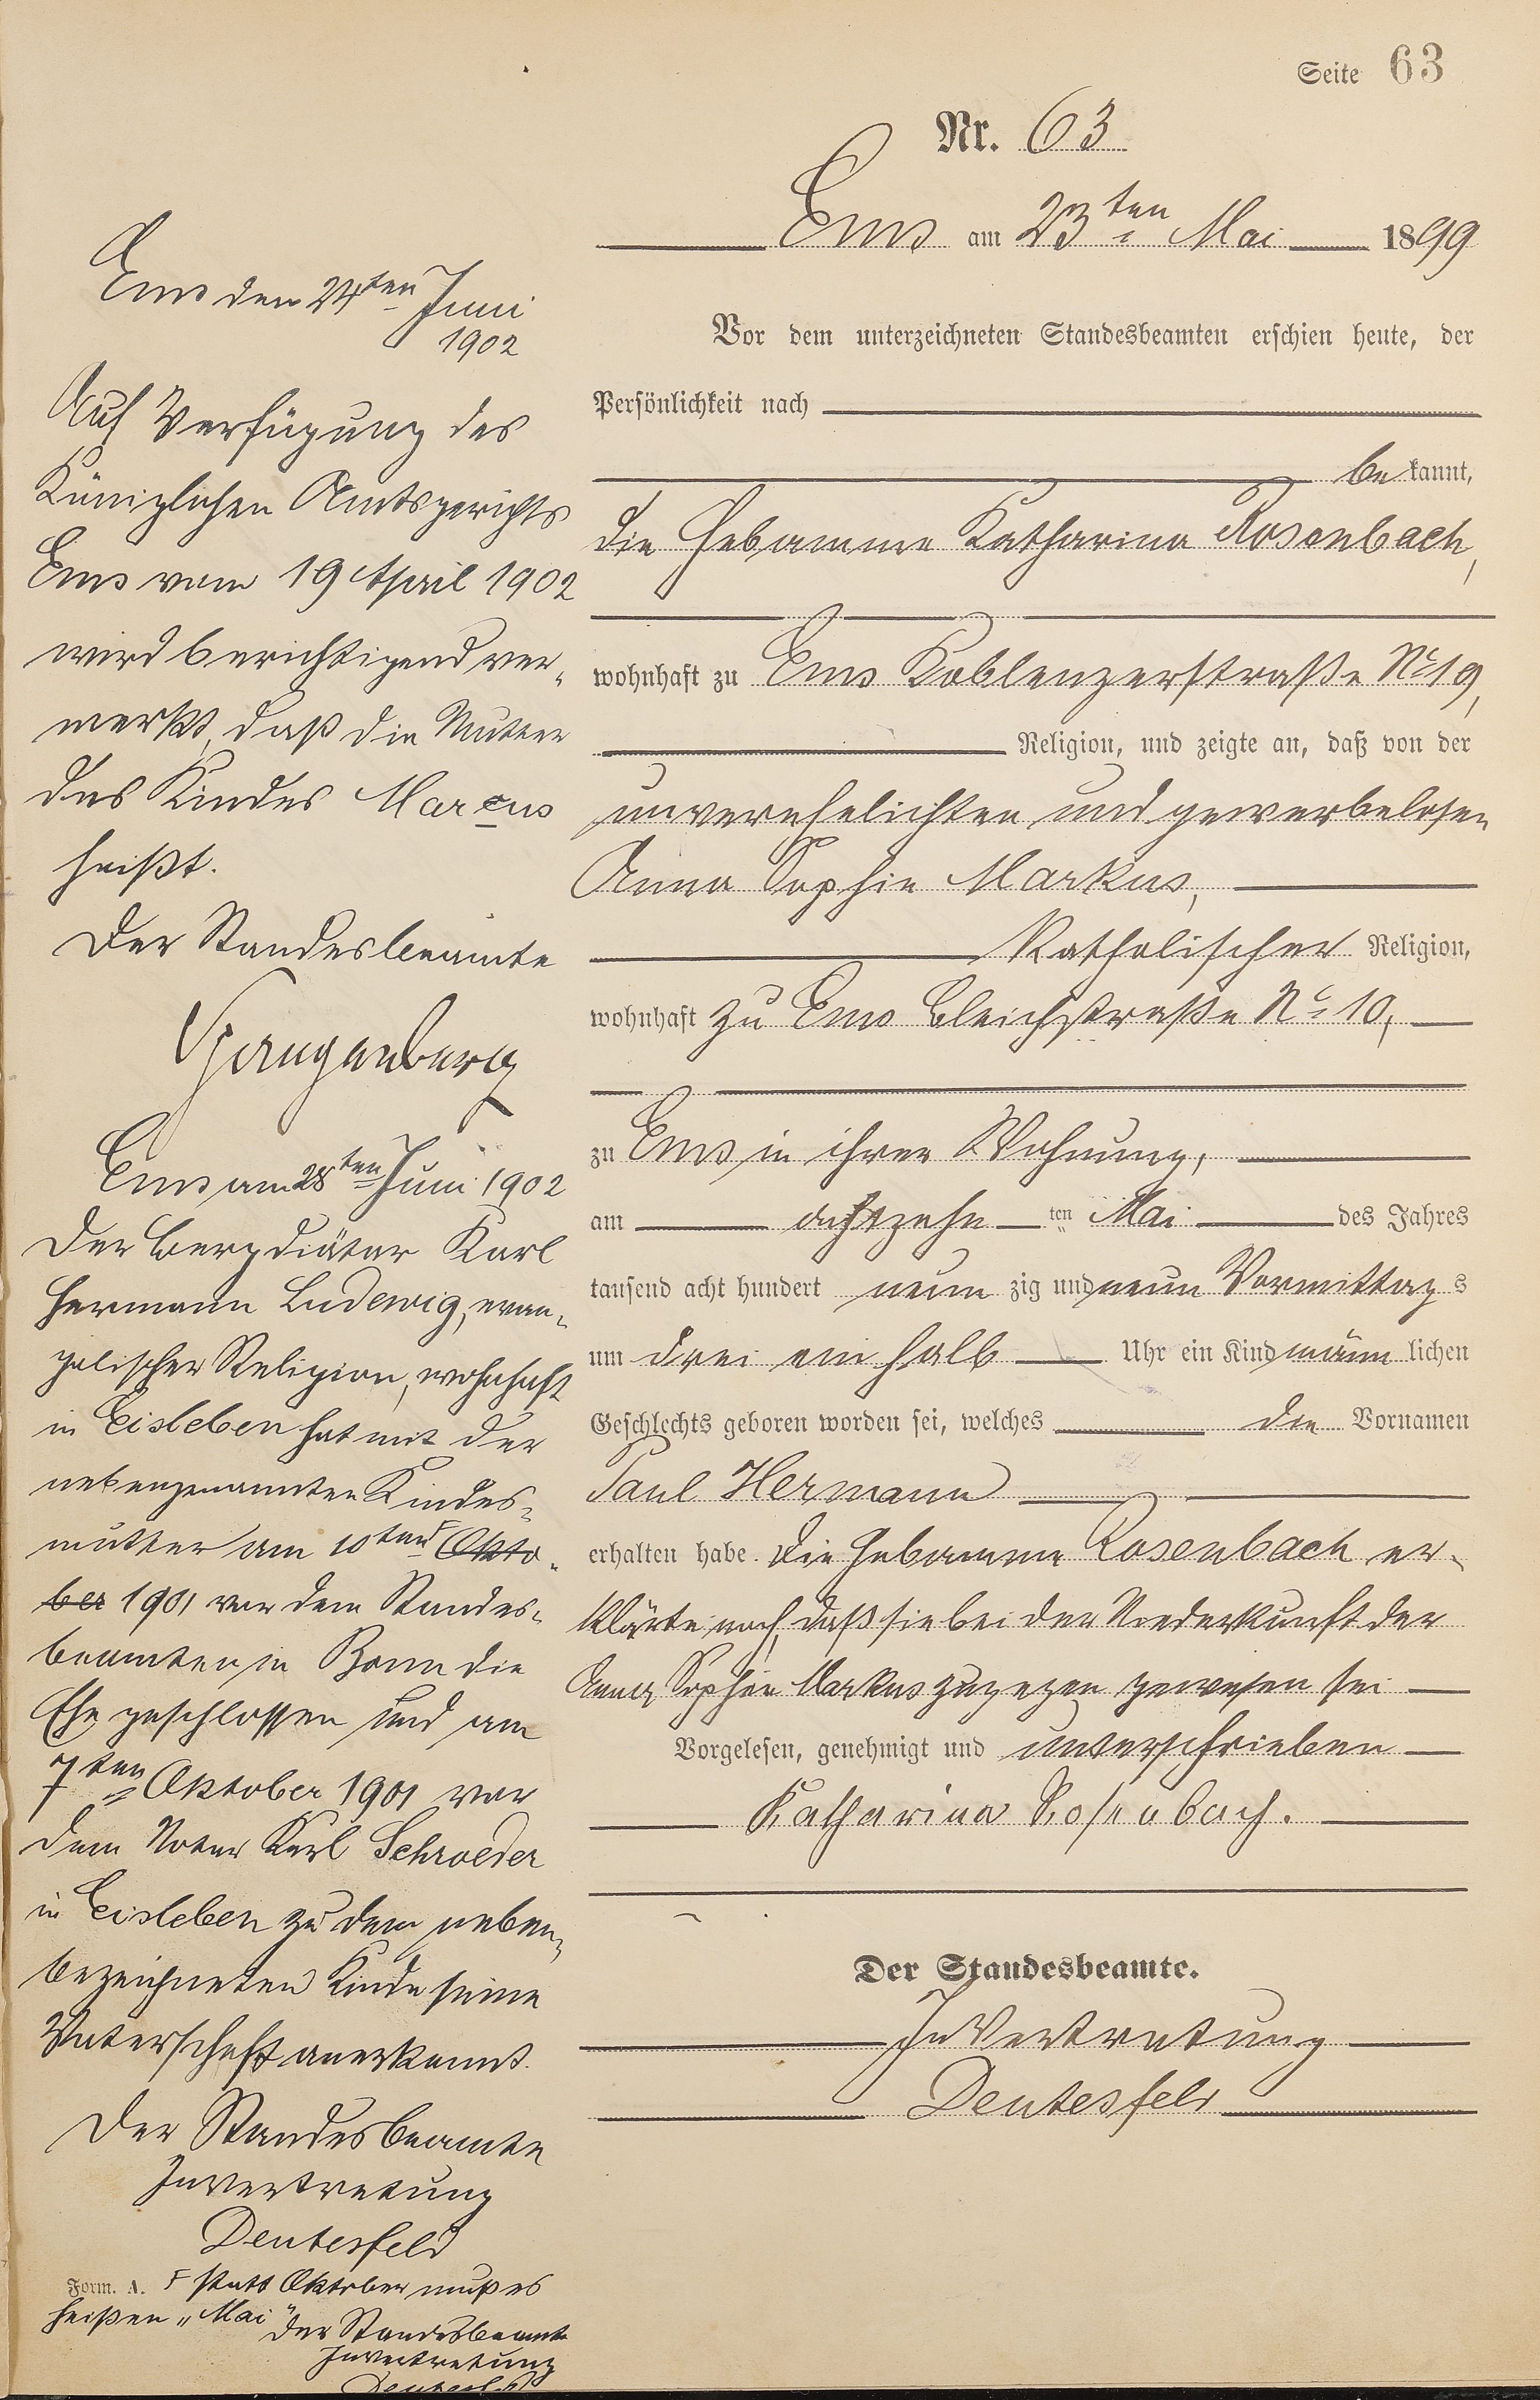 Seite 63
Nr. 63
Ems am 23ten Mai 1899
Vor dem unterzeichneten Standesbeamten erschien heute, der
Persönlichkeit nach
bekannt,
die Hebamme Katharina Rosenbach,
wohnhaft zu Ems Koblenzerstraße No 19,
Religion, und zeigte an, daß von der
unverehelichten und gewerbelosen
Anna Sophie Markus,
Katholischer Religion,
wohnhaft zu Ems Bleichstraße No 10,
zu Ems in ihrer Wohnung,
am achtzehn ten Mai des Jahres
tausend acht hundert neun zig und neun Vormittags
um drei ein halb Uhr ein Kind männlichen
Geschlechts geboren worden sei, welches die Vornamen
Paul Hermann
erhalten habe. Die Hebamme Rosenbach er-
klärte noch, daß sie bei der Niederkunft der
Anna Sophie Markus zugegen gewesen sei
Vorgelesen, genehmigt und unterschrieben
Katharina Rosenbach.
Der Standesbeamte.
In Vertretung
Deutesfeld
Ems den 24ten Juni
1902
Auf Verfügung des
Königlichen Amtsgerichts
Ems vom 19 April 1902
wird berichtigend ver-
merkt, daß die Mutter
des Kindes Marcus
heißt.
Der Standesbeamte
Spangenberg
Ems am 28ten Juni 1902
Der Bergdiätar Karl
Hermann Ludewig, evan-
gelischer Religion, wohnhaft
in Eisleben hat mit der
nebengenannten Kindes-
mutter am 10ten F Okto-
ber 1901 vor dem Standes-
beamten in Bonn die
Ehe geschlossen und am
7ten Oktober 1901 vor
dem Notar Karl Schroeder
in Eisleben zu dem neben-
bezeichneten Kinde seine
Vaterschaft anerkannt.
Der Standesbeamte
In Vertretung
Deutesfeld
Form. A. F statt Oktober muß es
heißen „Mai"
Der Standesbeamte
In Vertretung
Deutesfeld